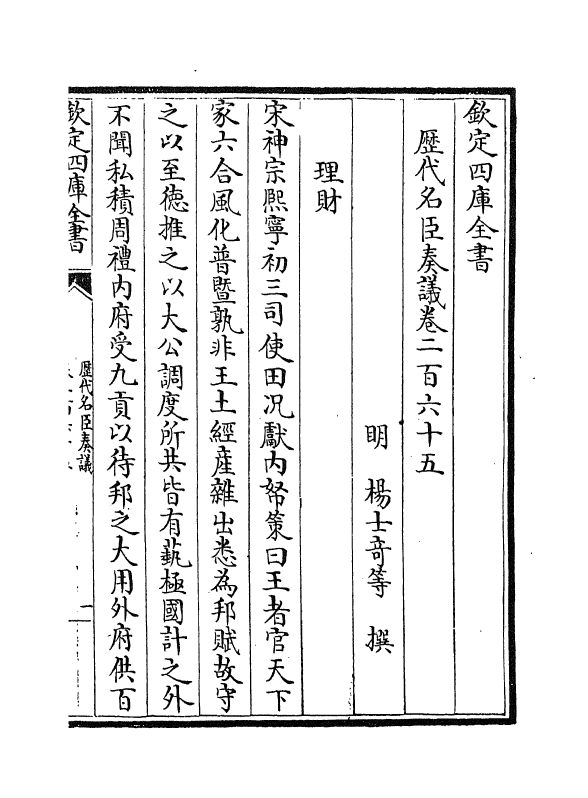 欽定四庫全書
歴代名臣奏議卷二百六十五
明 楊士竒等 撰
理財
宋神宗熈寧初三司使田况獻内帑策曰王者官天下
家六合風化普暨孰非王土經産雜出悉為邦賦故守
之以至徳推之以大公調度所共皆有蓺極國計之外
不聞私積周禮内府受九貢以待邦之大用外府供百
欽定四庫全書
歴代名臣奏議
一